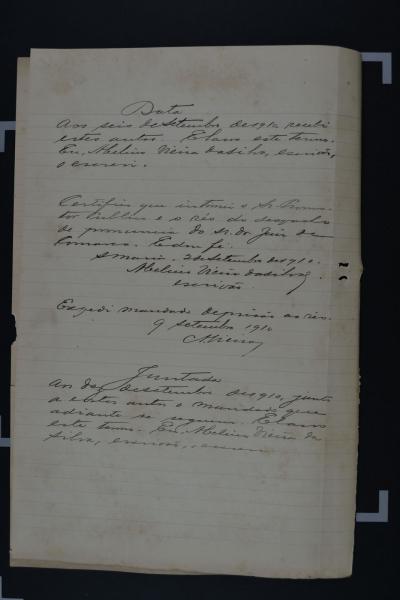 Data
Aos seis de Setembro de 1910, recebi
estes autos. E lavro este termo.
Eu, Abelino Vieira da Silva, escrivão,
o escrevi.
Certifico que intimei o Sr. Promo-
tor Publico e o réo do despacho
de pronuncia do sr. dr. Juiz da
Comarca. E dou fé.
S. Maria, de Setembro de 1910.
Abelino Vieira da Silva
escrivão.
Expedi mandado de prisão ao réo.
9 setembro 1910
Juntada
Aos dez de setembro de 1910, junto
a estes autos o mandado que
adiante se segue. E lavro
este termo. Eu, Abelino Vieira da
Silva, escrivão, o escrevi